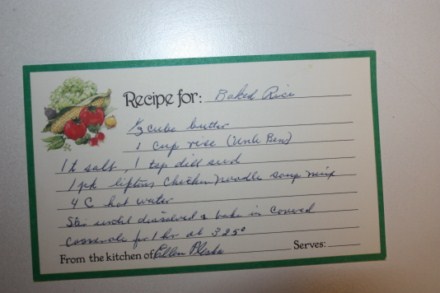 Recipe for: Baked Rice
½ cube butter
1 cup rice (Uncle Bens)
1 t salt, 1 tsp dill seed
1 pk liptons Chicken/noodle soup mix
4 C hot water
Stir until dissolved & bake in covered
casserole for 1 hr at 325°
From the kitchen of Ellen Serves: